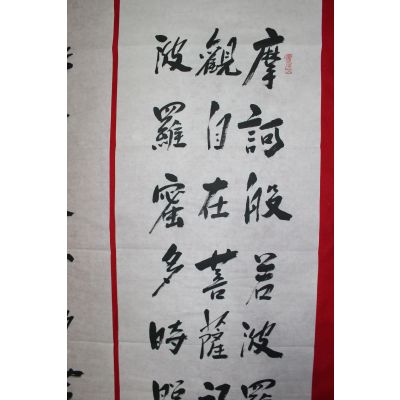 摩訶般若波羅
觀自在菩薩行
波羅蜜多時照